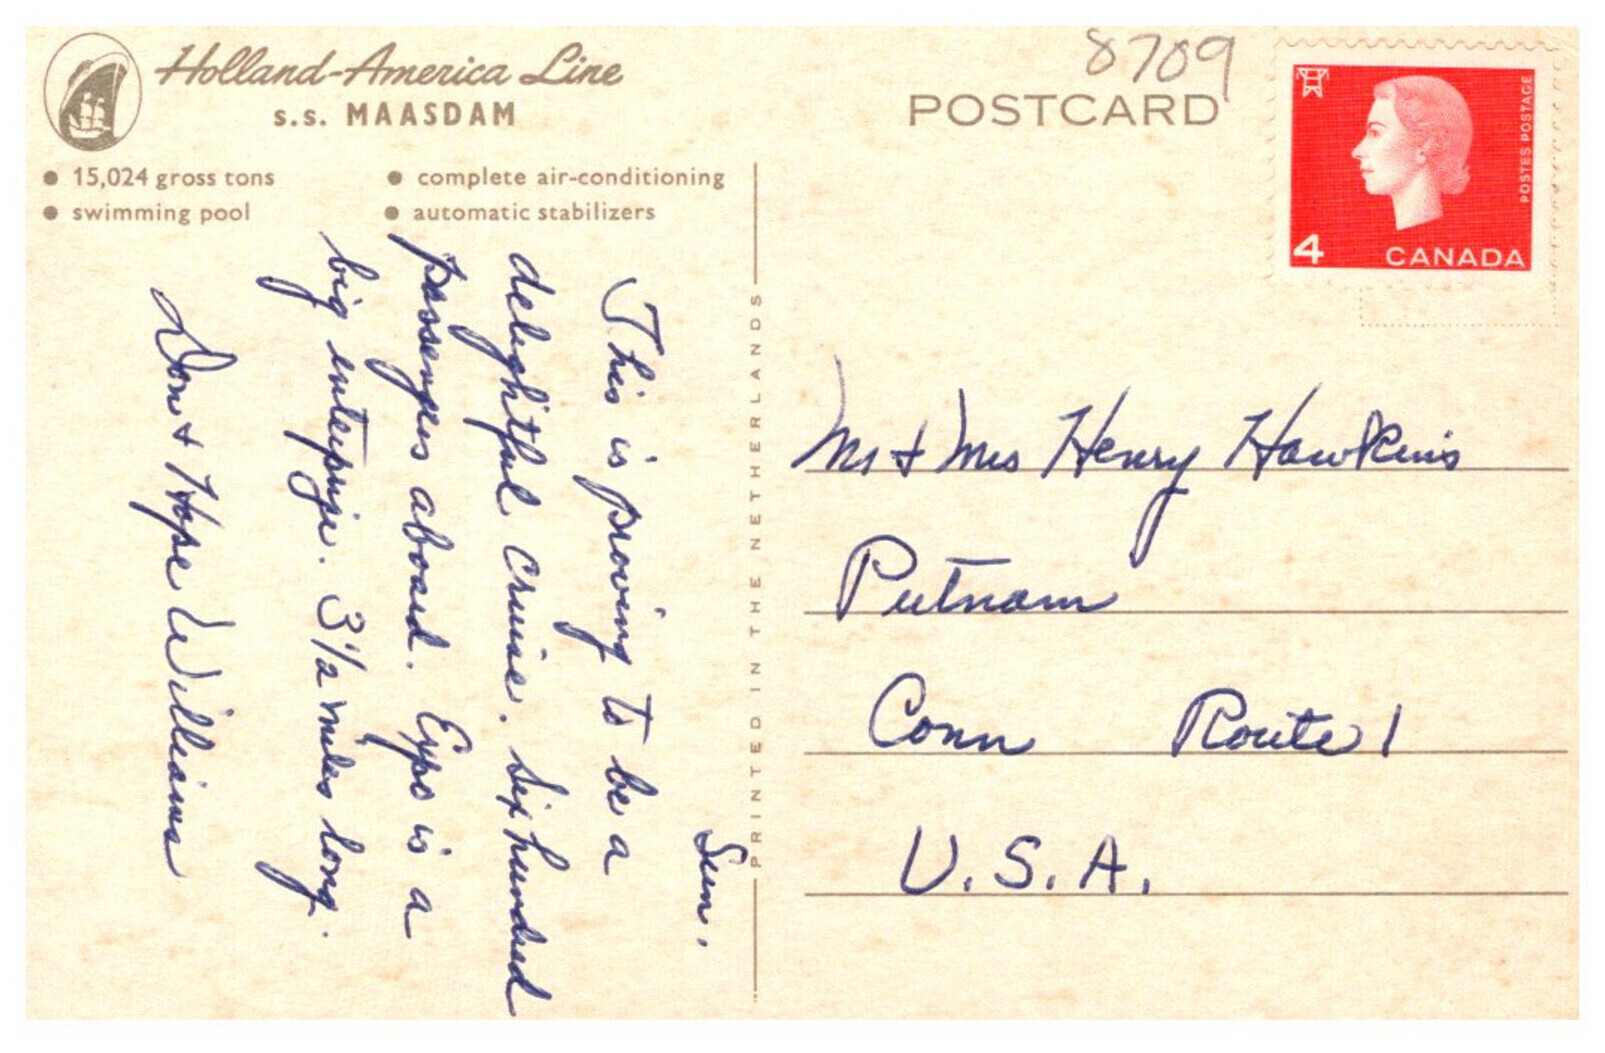 Holland-America Line
s.s. MAASDAM
• 15,024 gross tons
• swimming pool
• complete air-conditioning
• automatic stabilizers
Sun.
This is proving to be a
delightful cruise. Six hundred
passengers aboard. Expo is a
big enterprize. 3 1/2 miles long.
Don + Hope Williams
PRINTED IN THE NETHERLANDS
8709
POSTCARD
POSTES POSTAGE
4 CANADA
Mr + Mrs Henry Hawkins
Putnam
Conn Route 1
U.S.A.